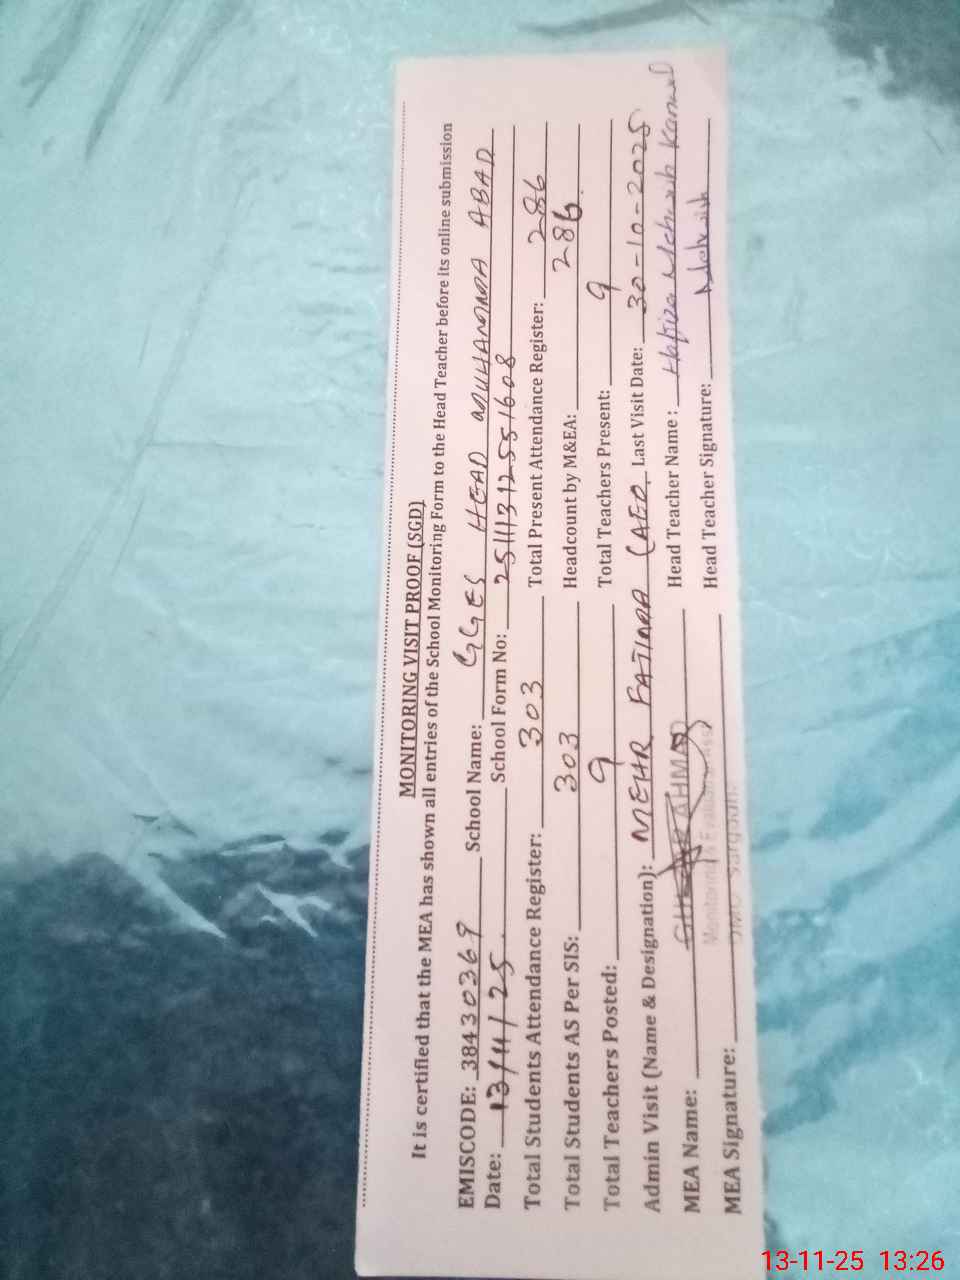 MONITORING VISIT PROOF (SGD)
It is certified that the MEA has shown all entries of the School Monitoring Form to the Head Teacher before its online submission
EMISCODE: 38430369 School Name: GGES HEAD MUHAMMAD ABAD
Date: 13/11/25 School Form No: 251113125551608
Total Students Attendance Register: 303 Total Present Attendance Register: 286
Total Students AS Per SIS: 303 Headcount by M&EA: 286
Total Teachers Posted: 9 Total Teachers Present: 9
Admin Visit (Name & Designation): MEHR FATIMA (AEO Last Visit Date: 30-10-2025
MEA Name: AHMAD Head Teacher Name : Hafiza Mehwish Kanwal
Monitoring & Evaluation
MEA Signature: DMO Sargodha Head Teacher Signature: Mehwish
13-11-25 13:26